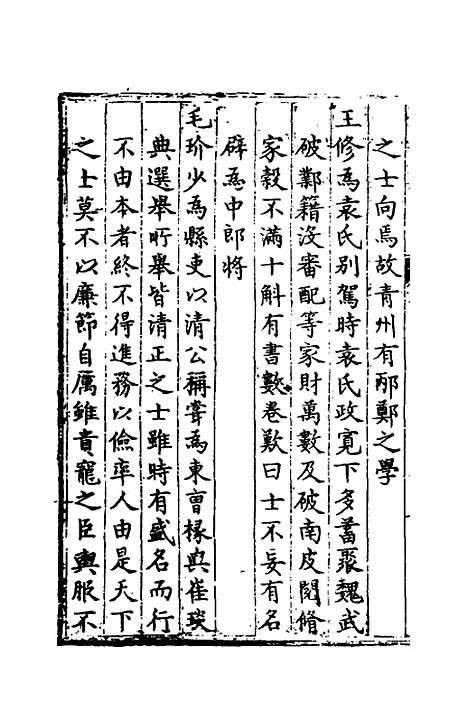 之士向焉故青州有邴鄭之學
王修為袁氏別駕時袁氏政寛下多蓄聚魏武
破鄴籍沒審配等家財萬數及破南皮閱脩
家穀不滿十斛有書數卷歎曰士不妄有名
辟為中郎將
毛玠少為縣吏以清公稱嘗為東曹掾與崔琰
典選舉所舉皆清正之士雖時有盛名而行
不由本者終不得進務以儉率人由是天下
之士莫不以廉節自厲雖貴寵之臣輿服不